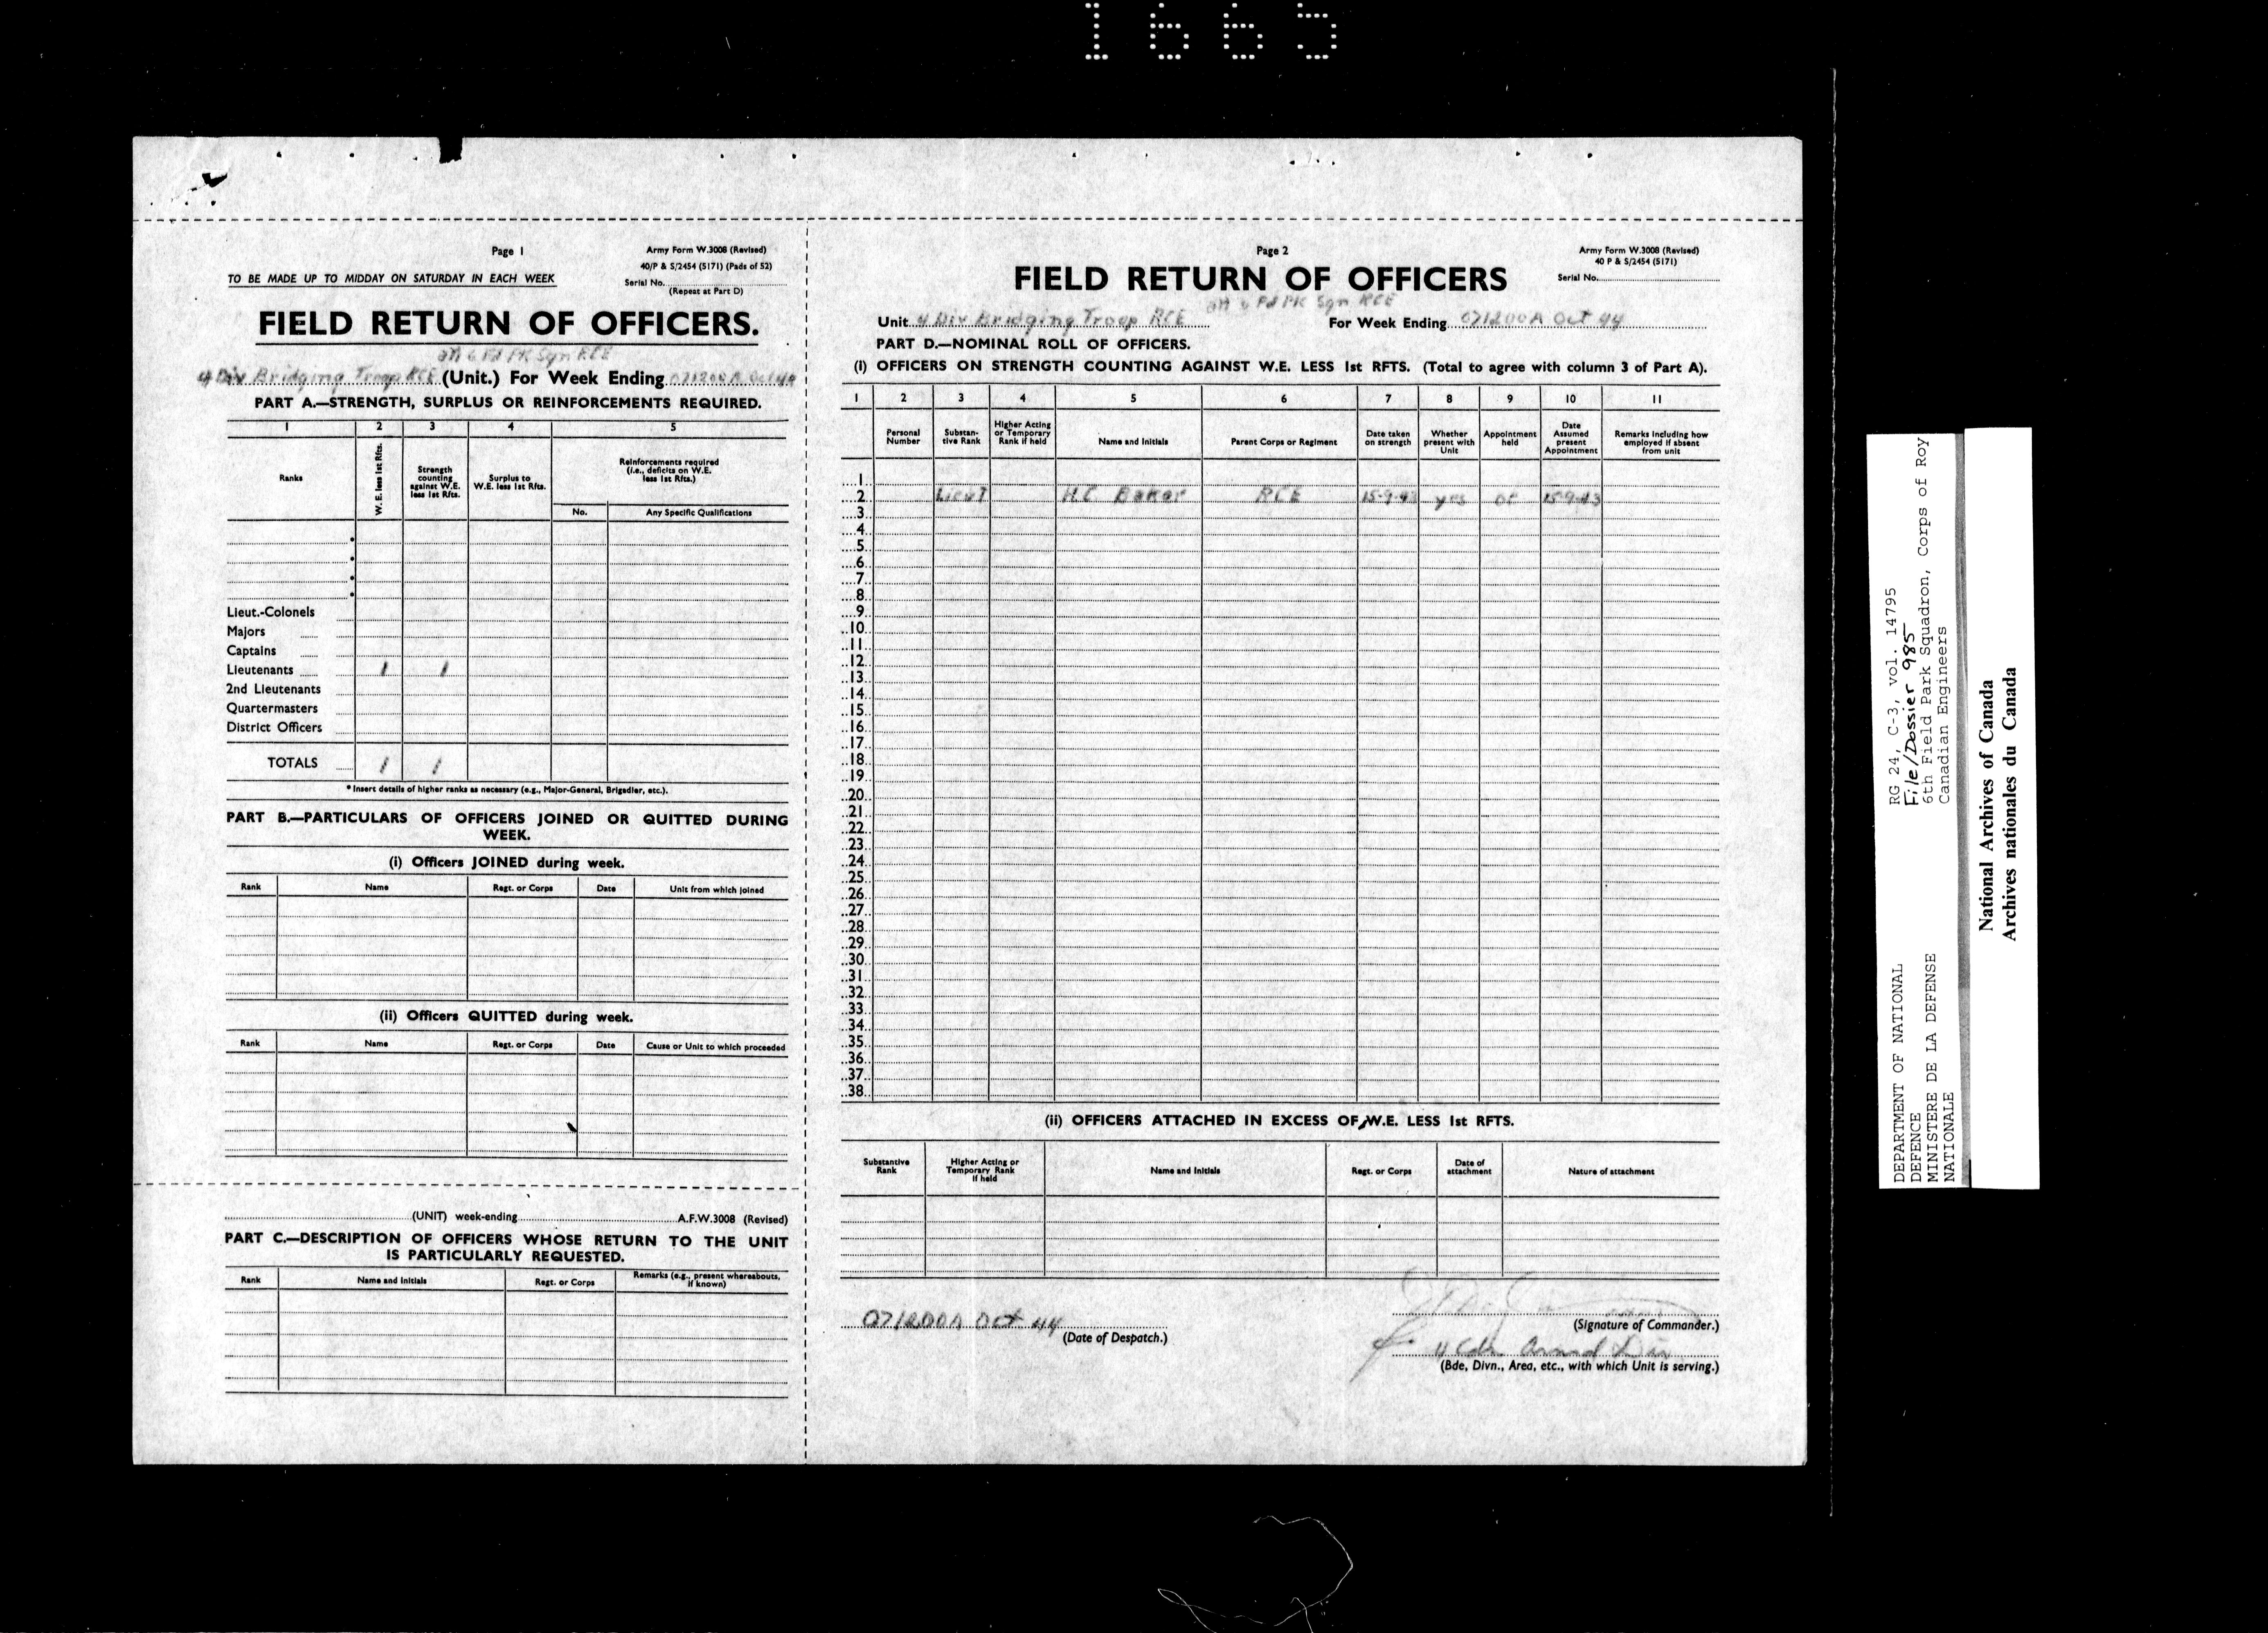 1665
Page 1
Army Form W.3008 (Revised)
40/P & S/2454 (5171) (Pads of 52)
TO BE MADE UP TO MIDDAY ON SATURDAY IN EACH WEEK
Serial No.
(Repeat at Part D)
FIELD RETURN OF OFFICERS.
att 6 Fd PK Sqn RCE
4 Div Bridging Troop RCE (Unit.) For Week Ending 071200A Oct 44
PART A.—STRENGTH, SURPLUS OR REINFORCEMENTS REQUIRED.
1 2 3 4 5
Ranks
W.E. less 1st Rfts.
Strength counting against W.E. less 1st Rfts.
Surplus to W.E. less 1st Rfts.
Reinforcements required (i.e., deficits on W.E. less 1st Rfts.)
No. Any Specific Qualifications
Lieut.-Colonels
Majors
Captains
Lieutenants 1 1
2nd Lieutenants
Quartermasters
District Officers
TOTALS 1 1
* Insert details of higher ranks as necessary (e.g., Major-General, Brigadier, etc.).
PART B.—PARTICULARS OF OFFICERS JOINED OR QUITTED DURING
WEEK.
(i) Officers JOINED during week.
Rank Name Regt. or Corps Date Unit from which joined
(ii) Officers QUITTED during week.
Rank Name Regt. or Corps Date Cause or Unit to which proceeded
(UNIT) week-ending A.F.W.3008 (Revised)
PART C.—DESCRIPTION OF OFFICERS WHOSE RETURN TO THE UNIT
IS PARTICULARLY REQUESTED.
Rank Name and Initials Regt. or Corps Remarks (e.g., present whereabouts, if known)
Page 2
Army Form W.3008 (Revised)
40 P & S/2454 (5171)
FIELD RETURN OF OFFICERS
Serial No.
att 6 Fd PK Sqn RCE
Unit 4 Div Bridging Troop RCE For Week Ending 071200A Oct 44
PART D.—NOMINAL ROLL OF OFFICERS.
(i) OFFICERS ON STRENGTH COUNTING AGAINST W.E. LESS 1st RFTS. (Total to agree with column 3 of Part A).
1 2 3 4 5 6 7 8 9 10 11
Personal Number
Substantive Rank
Higher Acting or Temporary Rank if held
Name and Initials
Parent Corps or Regiment
Date taken on strength
Whether present with Unit
Appointment held
Date Assumed present Appointment
Remarks including how employed if absent from unit
1
2 Lieut H.C. Baker RCE 15-9-43 yes 15-9-43
3
4
5
6
7
8
9
10
11
12
13
14
15
16
17
18
19
20
21
22
23
24
25
26
27
28
29
30
31
32
33
34
35
36
37
38
(ii) OFFICERS ATTACHED IN EXCESS OF W.E. LESS 1st RFTS.
Substantive Rank
Higher Acting or Temporary Rank if held
Name and Initials
Regt. or Corps
Date of attachment
Nature of attachment
071200A Oct 44
(Date of Despatch.)
(Signature of Commander.)
4 Cdn Armd Div
(Bde, Divn., Area, etc., with which Unit is serving.)
DEPARTMENT OF NATIONAL
DEFENCE
MINISTERE DE LA DEFENSE
NATIONALE
RG 24, C-3, vol. 14795
File/Dossier 985
6th Field Park Squadron, Corps of Roy
Canadian Engineers
National Archives of Canada
Archives nationales du Canada